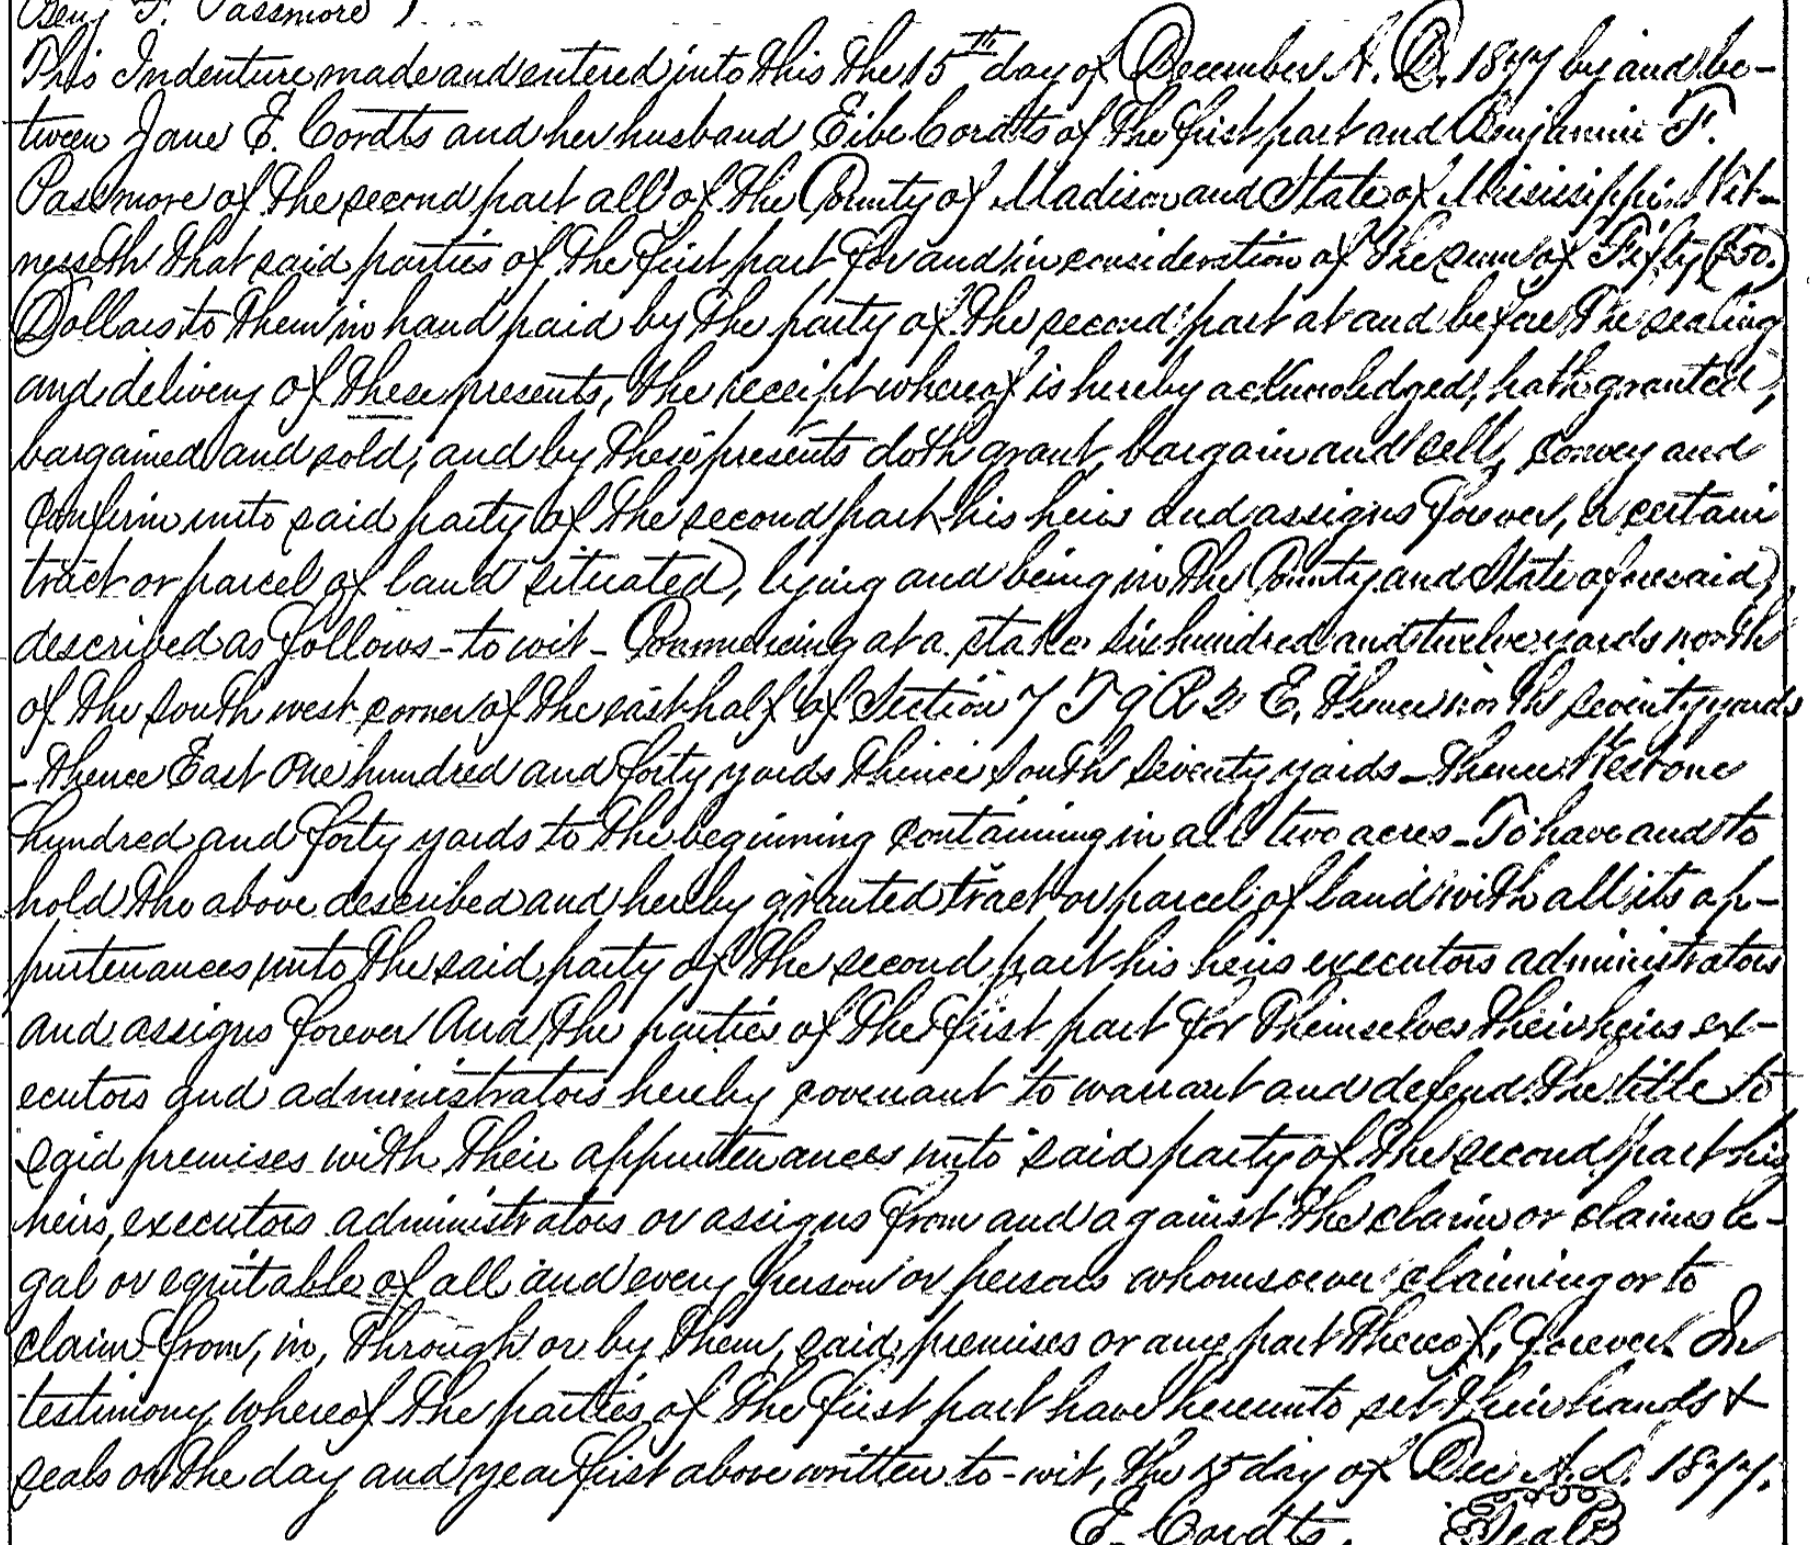 Benj F. Passmore )
This Indenture made and entered into this the 15th day of December A. D. 1877 by and be-
tween Jane E. Cordts and her husband Eibe Cordts of the first part and Benjamin F.
Passmore of the second part all of the County of Madison and State of Mississippi. Wit-
nesseth that said parties of the first part for and in consideration of the sum of Fifty (50.)
Dollars to them in hand paid by the party of the second part at and before the sealing
and delivery of these presents, the receipt whereof is hereby acknowledged, hath granted,
bargained and sold, and by these presents doth grant, bargain and sell, convey and
confirm unto said party of the second part his heirs and assigns forever, a certain
tract or parcel of land situated, lying and being in the County and State aforesaid,
described as follows - to wit - Commencing at a stake six hundred and twelve yards north
of the south west corner of the east half of Section 7 T 9 R 2 E. thence north seventy yards
- thence East One hundred and forty yards thence South Seventy yards - thence West one
hundred and forty yards to the beginning containing in all two acres - To have and to
hold the above described and hereby granted tract or parcel of land with all its ap-
purtenances unto the said party of the second part his heirs executors administrators
and assigns forever And the parties of the first part for themselves their heirs ex-
ecutors and administrators hereby covenant to warrant and defend the title to
said premises with their appurtenances unto said party of the second part his
heirs, executors administrators or assigns from and against the claim or claims le-
gal or equitable of all and every person or persons whomsoever claiming or to
claim from, in, through or by them, said premises or any part thereof, forever. In
testimony whereof the parties of the first part have hereunto set their hands &
seals on the day and year first above written to-wit, the 15 day of Dec A.D. 1877.
E. Cordts. Seal